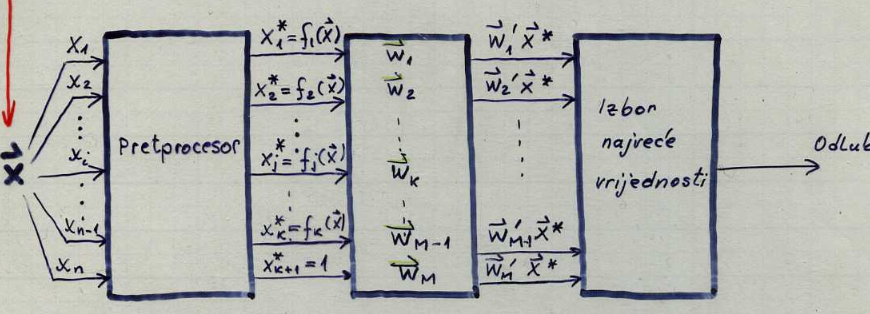 x⃗
x₁
x₂
xᵢ
xₙ₋₁
xₙ
Pretprocesor
x₁* = f₁(x⃗)
x₂* = f₂(x⃗)
xⱼ* = fⱼ(x⃗)
x_K* = f_K(x⃗)
x*_K+1 = 1
w⃗₁
w⃗₂
w⃗_K
w⃗_M-1
w⃗_M
w⃗₁' x⃗*
w⃗₂' x⃗*
w⃗'_M-1 x⃗*
w⃗_M' x⃗*
Izbor
najveće
vrijednosti
Odluk